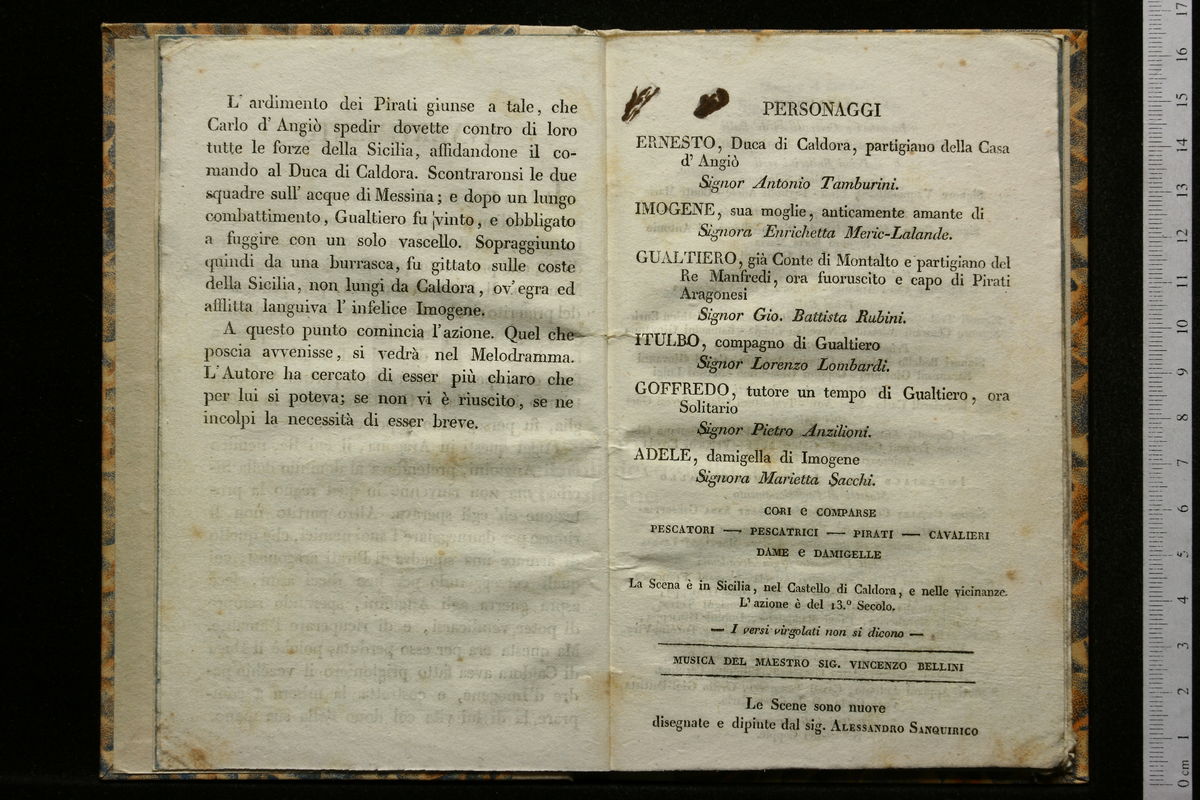 L' ardimento dei Pirati giunse a tale, che
Carlo d' Angiò spedir dovette contro di loro
tutte le forze della Sicilia, affidandone il co-
mando al Duca di Caldora. Scontraronsi le due
squadre sull' acque di Messina; e dopo un lungo
combattimento, Gualtiero fu vinto, e obbligato
a fuggire con un solo vascello. Sopraggiunto
quindi da una burrasca, fu gittato sulle coste
della Sicilia, non lungi da Caldora, ov' egra ed
afflitta languiva l' infelice Imogene.
A questo punto comincia l'azione. Quel che
poscia avvenisse, si vedrà nel Melodramma.
L'Autore ha cercato di esser più chiaro che
per lui si poteva; se non vi è riuscito, se ne
incolpi la necessità di esser breve.
PERSONAGGI
ERNESTO, Duca di Caldora, partigiano della Casa
d' Angiò
Signor Antonio Tamburini.
IMOGENE, sua moglie, anticamente amante di
Signora Enrichetta Meric-Lalande.
GUALTIERO, già Conte di Montalto e partigiano del
Re Manfredi, ora fuoruscito e capo di Pirati
Aragonesi
Signor Gio. Battista Rubini.
ITULBO, compagno di Gualtiero
Signor Lorenzo Lombardi.
GOFFREDO, tutore un tempo di Gualtiero, ora
Solitario
Signor Pietro Anzilioni.
ADELE, damigella di Imogene
Signora Marietta Sacchi.
CORI e COMPARSE
PESCATORI — PESCATRICI — PIRATI — CAVALIERI
DAME e DAMIGELLE
La Scena è in Sicilia, nel Castello di Caldora, e nelle vicinanze.
L' azione è del 13.º Secolo.
— I versi virgolati non si dicono —
MUSICA DEL MAESTRO SIG. VINCENZO BELLINI
Le Scene sono nuove
disegnate e dipinte dal sig. ALESSANDRO SANQUIRICO
17
16
15
14
13
12
11
10
9
8
7
6
5
4
3
2
1
0 cm